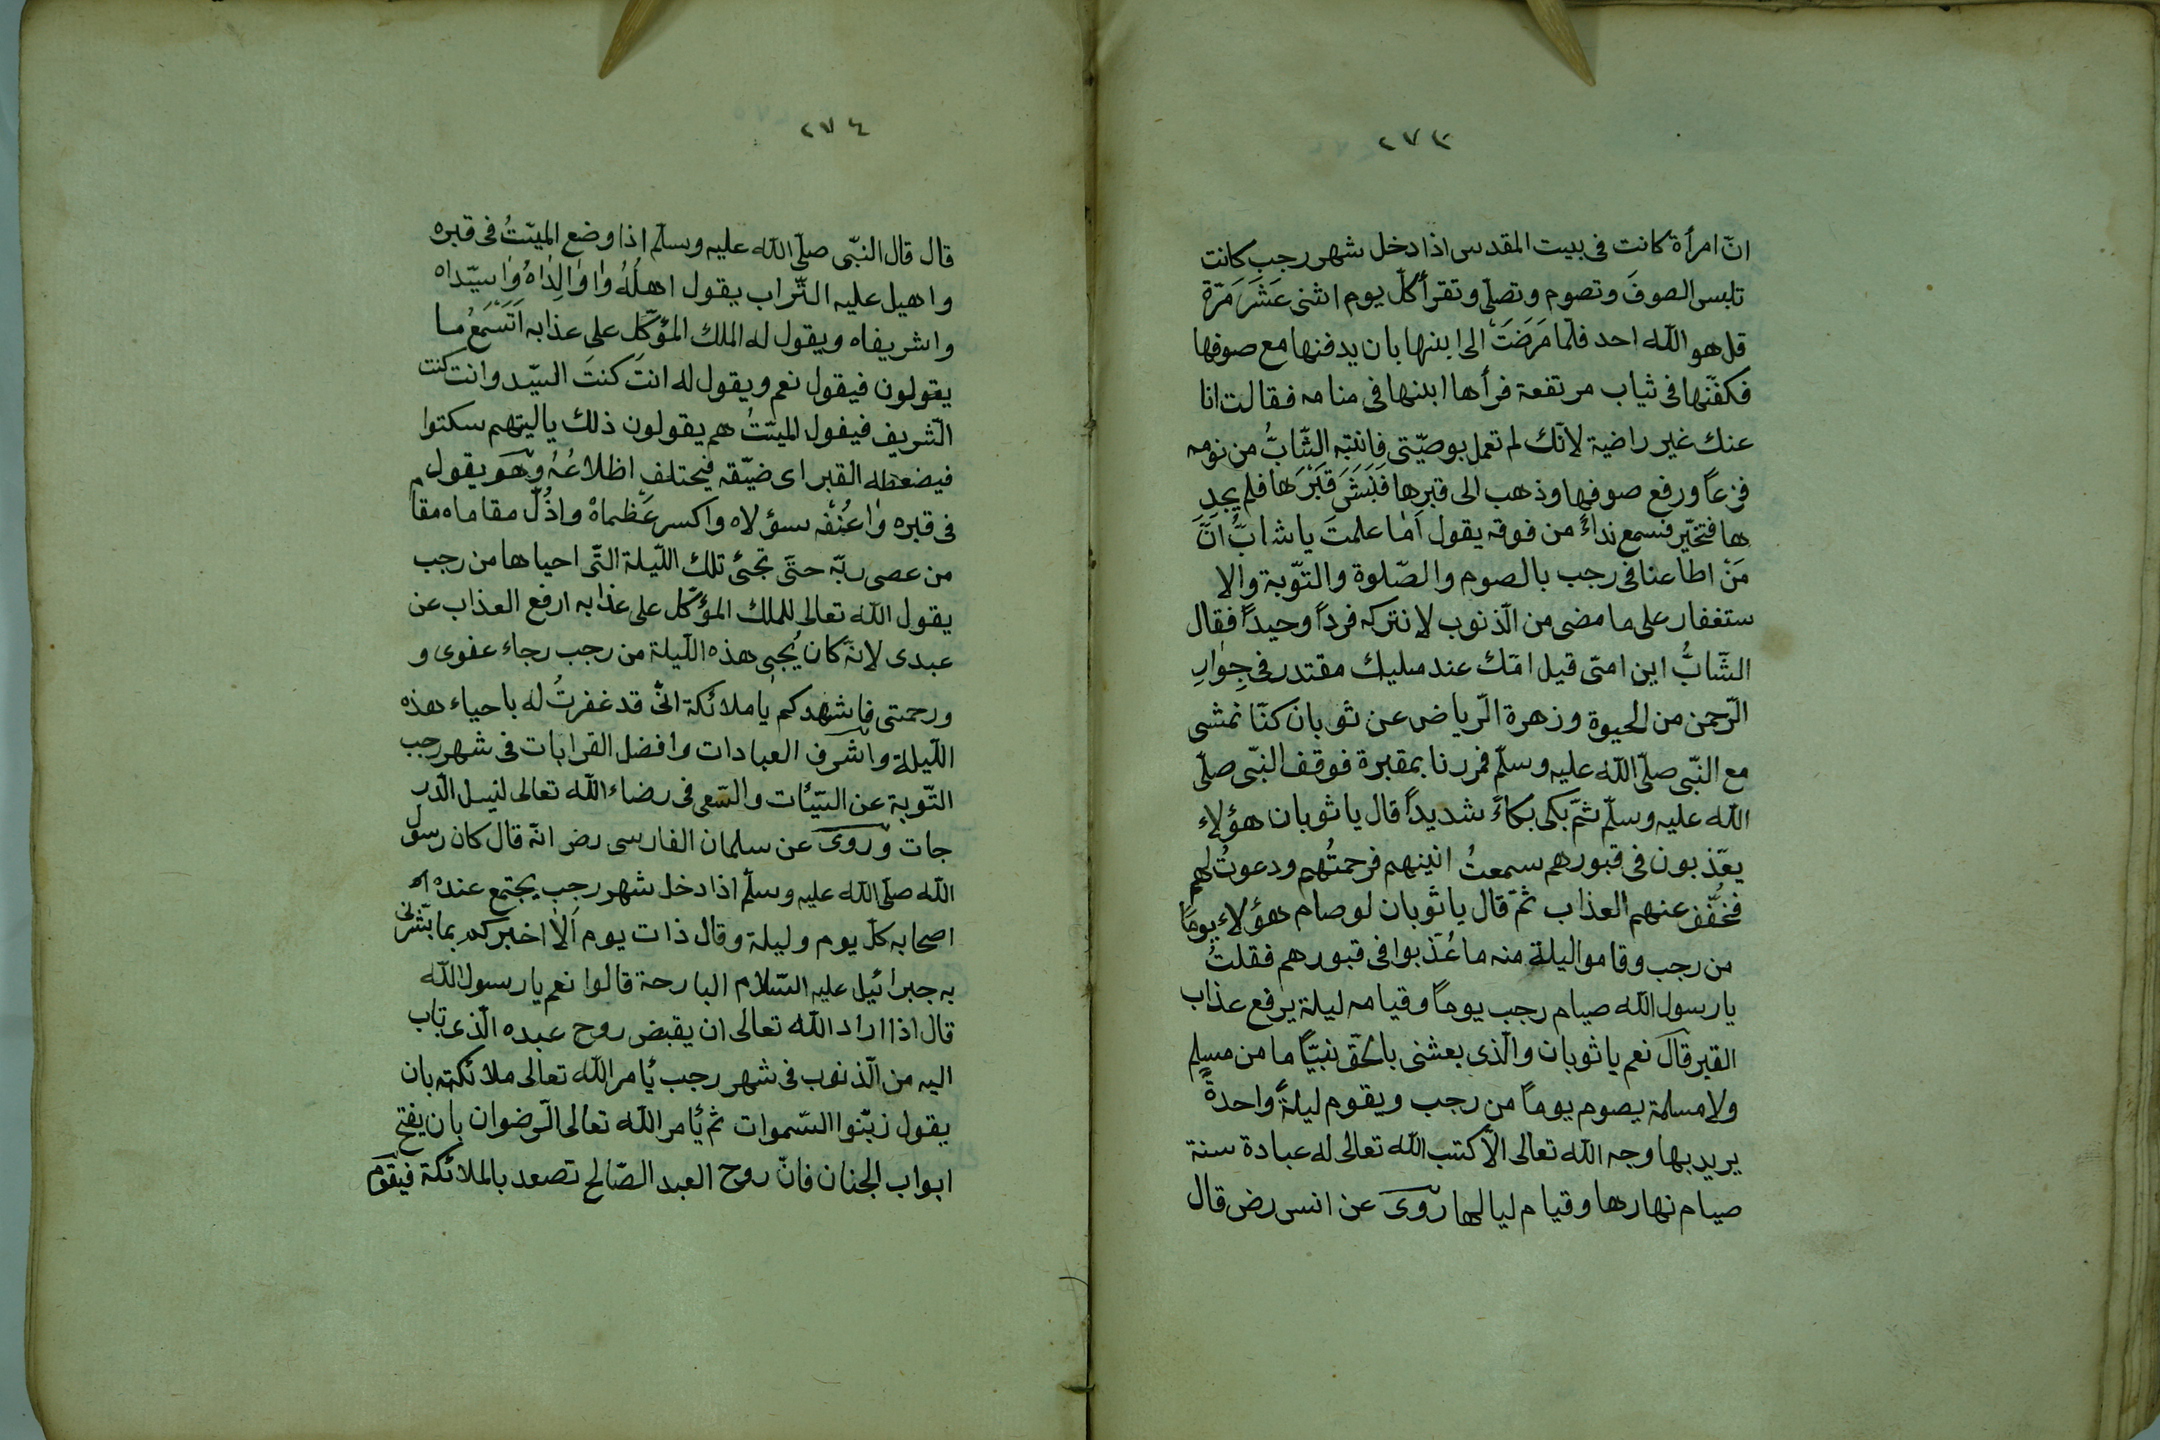 ٢٧٣
انّ امرأة كانت فى بيت المقدس اذا دخل شهر رجب كانت
تلبس الصوفَ وتصوم وتصلّى وتقرأ كلّ يوم اثنى عَشَرَ مَرّة
قل هو اللّه احد فلمّا مَرَضَتْ الى ابنها بان يدفنها مع صوفها
فكفّنها فى ثياب مرتفعة فرأها ابنها فى منامه فقالت انا
عنك غير راضية لانّك لم تعمل بوصيّتى فانتبه الشّابُّ من نومه
فزعاً ورفع صوفها وذهب الى قبرها فَنَبَشَ قَبْرَها فلم يجد
ها فتحيّر فسمع نداءً من فوقه يقول اَمٰا علمتَ يا شابُّ اَنَّ
مَنْ اطاعنا فى رجب بالصوم والصّلوة والتّوبة والا
ستغفار على ما مضى من الذّنوب لا نتركه فرداً وحيداً فقال
الشّابُّ اين امّى قيل امّك عند مليك مقتدر فى جِوٰارِ
الرّحمن من الحيوة وزهرة الرّياض عن ثوبان كنّا نمشى
مع النّبى صلّى اللّه عليه وسلّم فمررنا بمقبرة فوقف النّبى صلّى
اللّه عليه وسلّم ثمّ بكى بكاءً شديداً قال يا ثوبان هؤلاء
يعذّبون فى قبورهم سمعتُ انينهم فرحمتُهم ودعوتُ لهم
فخُفّف عنهم العذاب ثمّ قال يا ثوبان لو صام هؤلاء يوماً
من رجب وقاموا ليلة منه ما عُذّبوا فى قبورهم فقلتُ
يا رسول اللّه صيام رجب يوماً وقيامه ليلة يرفع عذاب
القبر قال نعم يا ثوبان والّذى بعثنى بالحّق نبيّاً ما من مسلم
ولا مسلمة يصوم يوماً من رجب ويقوم ليلةً واحدةً
يريد بها وجه اللّه تعالى الّا كتب اللّه تعالى له عبادة سنة
صيام نهارها وقيام لياليها روى عن انس رض قال
٢٧٤
قال قال النّبى صلّى اللّه عليه وسلّم اذا وضع الميّتُ فى قبره
واهيل عليه التّراب يقول اهلُهُ وٰا وٰالِدٰاهُ وٰا سيّداه
واشريفاه ويقول له الملك المؤكّل على عذابه اَتَسْمَعُ ما
يقولون فيقول نعم ويقول له انتَ كنتَ السيّد وانت كنت
الشّريف فيقول الميّتُ هم يقولون ذلك يا ليتهم سكتوا
فيضغطه القبر اى ضيّقه فيختلف اظلاعُهُ وهو يقول
فى قبره وٰا عُنُقه سؤلاه واكسر عَظماهْ واذُلّ مقاماه مقام
من عصى ربّه حتّى تجئ تلك اللّيلة التّى احياها من رجب
يقول اللّه تعالى للملك المؤكّل على عذابه ارفع العذاب عن
عبدى لانّه كان يُحيى هذه اللّيلة من رجب رجاء عفوى و
ورحمتى فاشهدكم يا ملائكة انّى قد غفرتُ له باحياء هذه
اللّيلة واشرف العبادات وافضل القرابات فى شهر رجب
التّوبة عن السّيّئات والسّعى فى رضاء اللّه تعالى لنيل الدّر
جات وروى عن سلمان الفارسى رض انّه قال كان رسول
اللّه صلّى اللّه عليه وسلّم اذا دخل شهر رجب يجتمع عنده
اصحابه كلّ يوم وليلة وقال ذات يوم اَلٰا اخبركم بما بشّرنى
به جبرائيل عليه السّلام البارحة قالوا نعم يا رسول اللّه
قال اذا اراد اللّه تعالى ان يقبض روح عبده الّذى تاب
اليه من الذّنوب فى شهر رجب يأمر اللّه تعالى ملائكته بان
يقول زيّنوا السّموات ثم يأمر اللّه تعالى الرّضوان بان يفتح
ابواب الجنان فانّ روح العبد الصّالح تصعد بالملائكة فيقوم